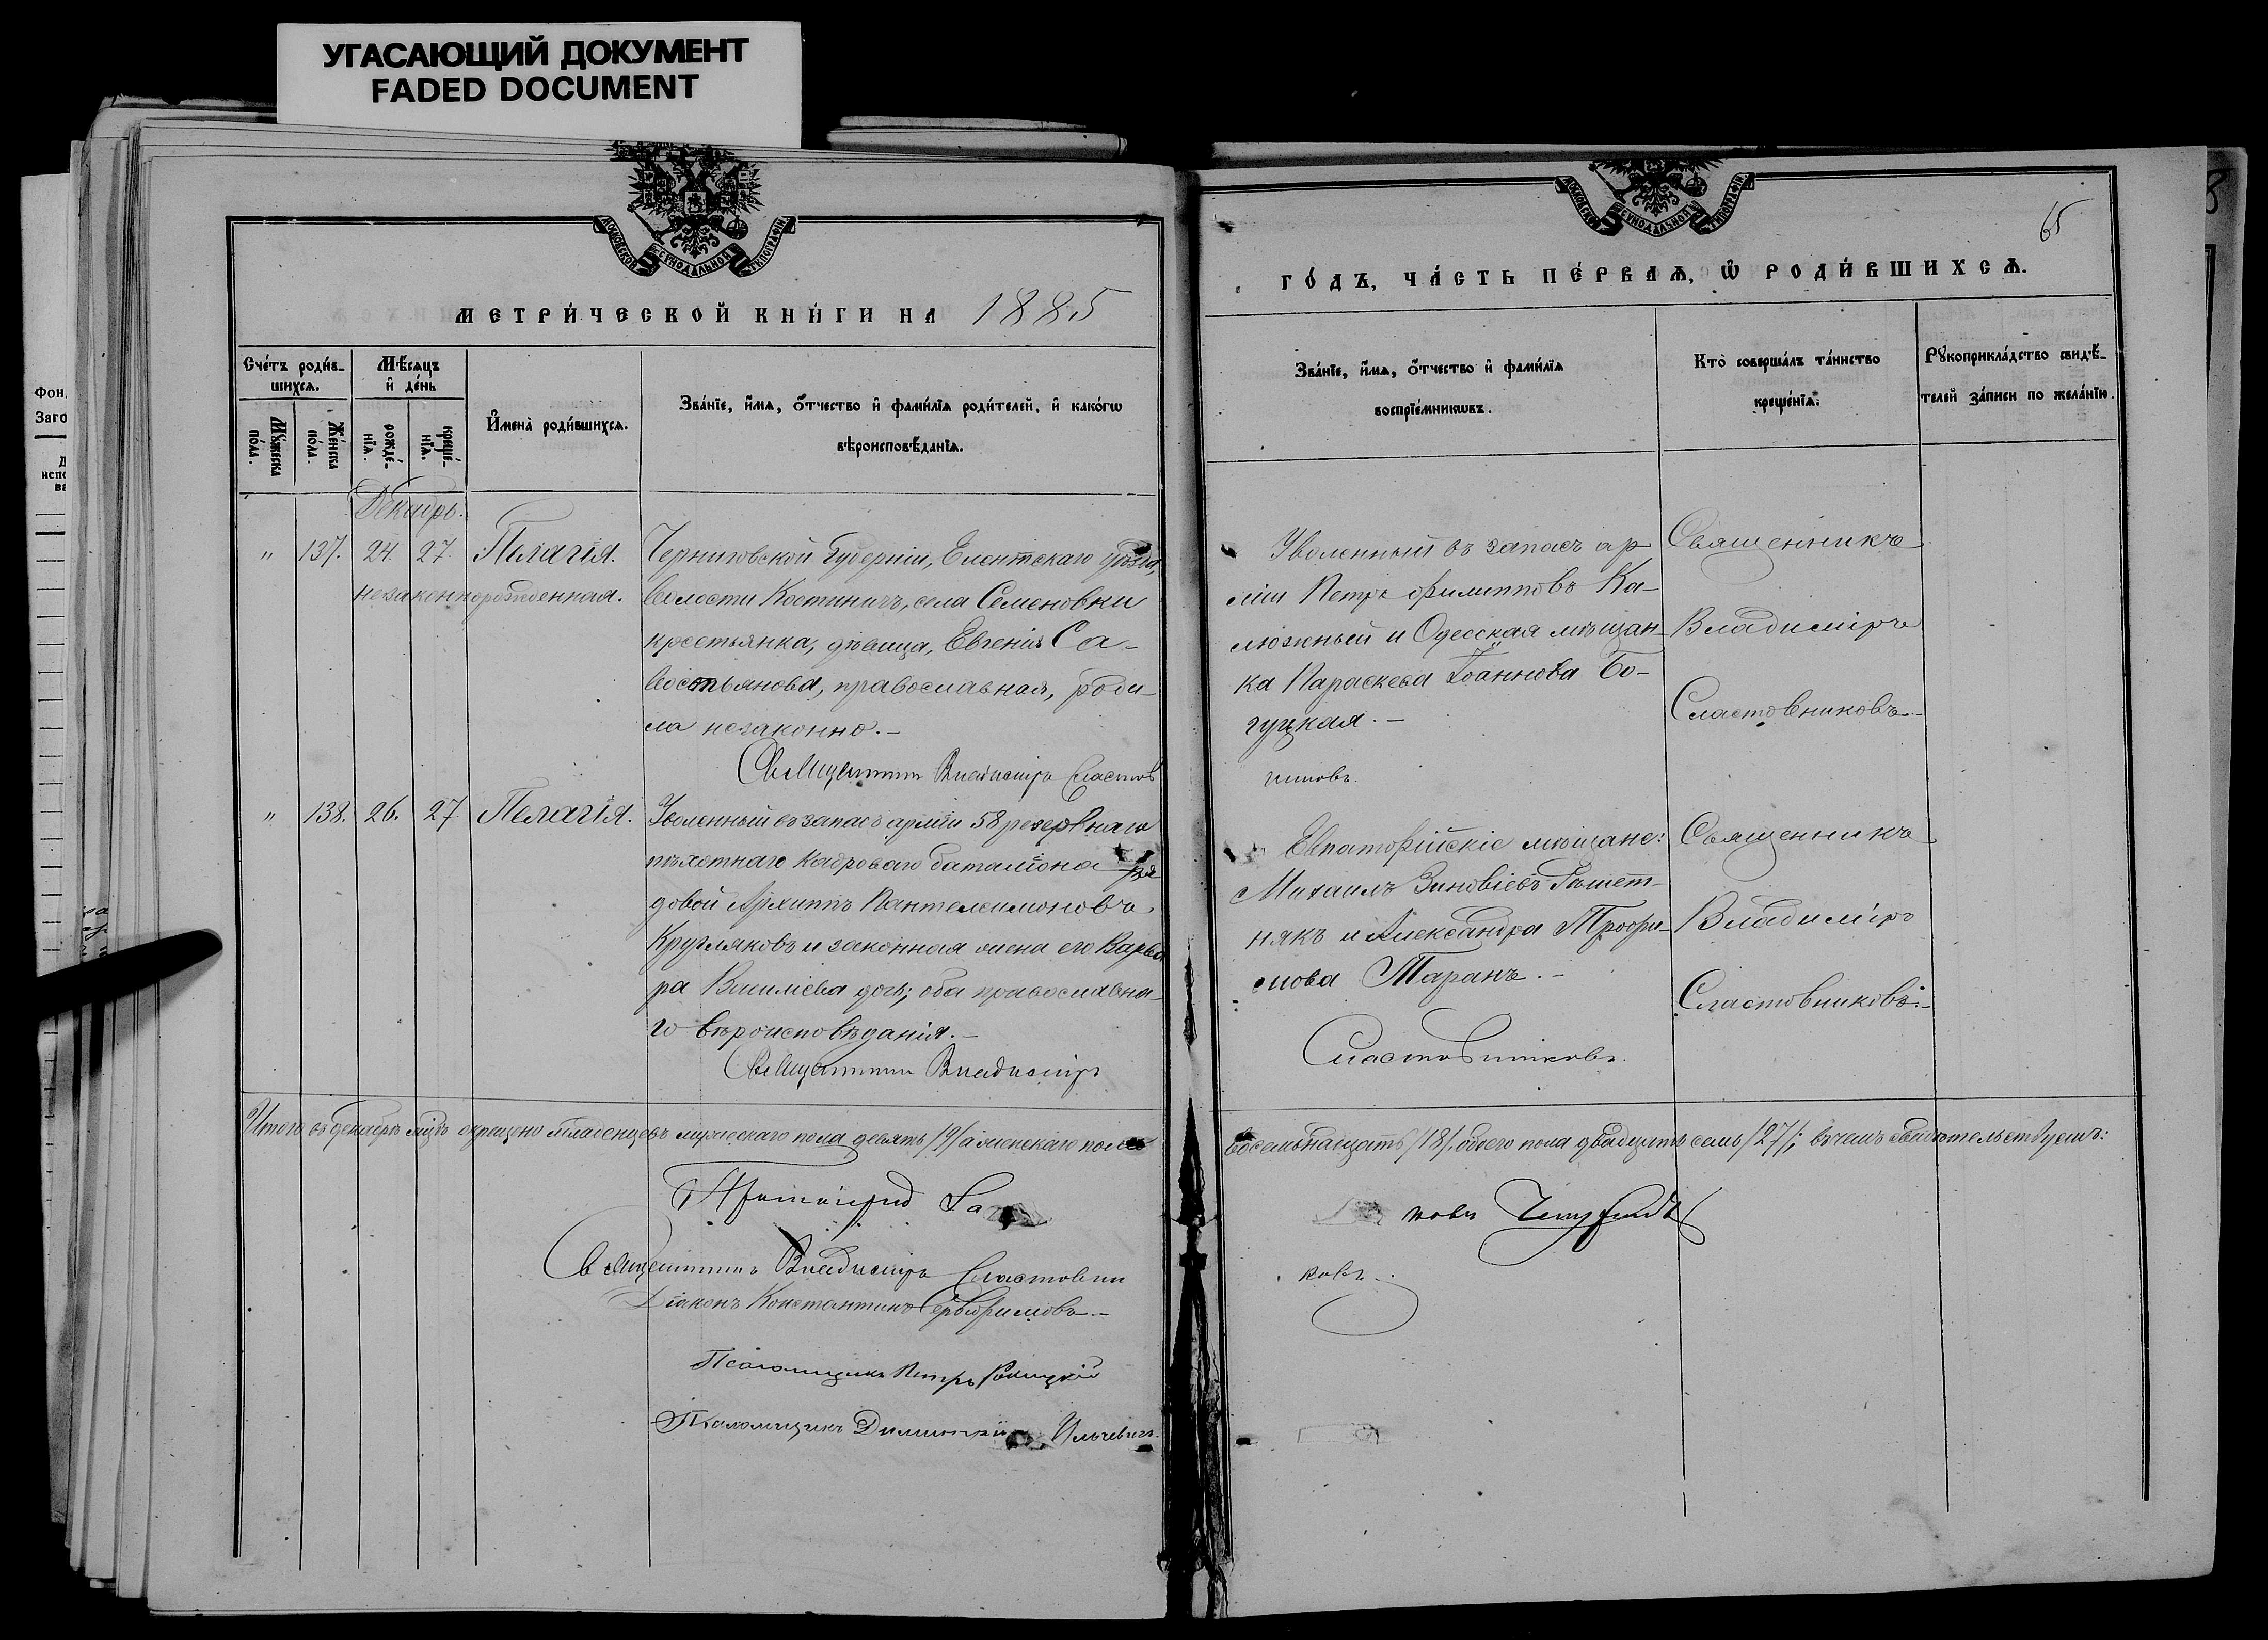 УГАСАЮЩИЙ ДОКУМЕНТ
FADED DOCUMENT
Фон.
Заго
МОСКОВСКОЙ СУНОДАЛЬНОЙ ТИПОГРАФІИ
МЕТРИ́ЧЕСКОЙ КНИ́ГИ НА 1885
Сче́тъ роди́в-
шихсѧ.
Мѣ́сѧцъ
и҆ де́нь
Мꙋ́жеска
по́ла.
Же́нска
по́ла.
рожде́-
нїѧ.
креще́-
нїѧ.
И҆мена̀ роди́вшихсѧ.
Зва́нїе, и҆́мѧ, ѻ҆́тчество и҆ фами́лїѧ роди́телей, и҆ како́гѡ
вѣроисповѣ́данїѧ.
Декабрь.
" 137. 24. 27. Пелагія.
незаконнорожденная.
Черниговской Губерніи, уѣзда,
волости Костиничъ, села Семеновки
крестьянка, дѣвица, Евгенія Са-
востьянова, православная, роди-
ла незаконно.-
Священникъ Владиміръ Сластов
" 138. 26. 27. Пелагія.
Уволенный въ запасъ арміи 58 резервнаго
пѣхотнаго кадроваго баталіона ря
довой Архиппъ Пантелеимоновъ
Кругляковъ и законная жена его Варва
ра Василіева дочь; оба православна-
го вѣроисповѣданія.-
Священникъ Владиміръ
Итого въ декабрѣ мцѣ крещено младенцевъ мужескаго пола девять /9/ а женскаго пола
Священникъ Владиміръ Сластовни
Діаконъ Константинъ
Псаломщикъ Петръ
Псаломщикъ Димитрій Ильчевичъ.
65
МОСКОВСКОЙ СУНОДАЛЬНОЙ ТИПОГРАФІИ
ГО́ДЪ, ЧА́СТЬ ПЕ́РВАѦ, Ѡ҆ РОДИ́ВШИХСѦ.
Зва́нїе, и҆́мѧ, ѻ҆́тчество и҆ фами́лїѧ
воспрїе́мникѡвъ.
Кто̀ соверша́лъ та́инство
креще́нїѧ.
Рꙋкоприкла́дство свидѣ́-
телей за́писи по жела́нїю.
Уволенный въ запасъ ар
міи Петръ Филипповъ Ка-
люжный и Одесская мѣщан-
ка Параскева Іоаннова Бо-
гуцкая.-
никовъ.
Священникъ
Владиміръ
Сластовниковъ.-
Евпаторійскіе мѣщане:
Михаилъ Зиновіевъ Рѣшет-
някъ и Александра Трофи-
мова Таранъ.-
Сластовниковъ.
Священникъ
Владиміръ
Сластовниковъ.-
восемьнадцать /18/, обоего пола двадцать семь /27/; въ чемъ свидѣтельствуемъ:
ковъ.